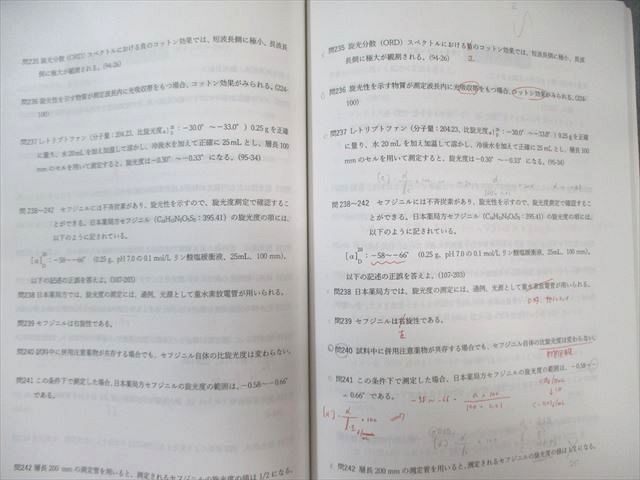 問235 旋光分散（ORD）スペクトルにおける負のコットン効果では、短波長側に極小、長波長
側に極大が観測される。(94-26)
問236 旋光性を示す物質が測定波長内に光吸収帯をもつ場合、コットン効果がみられる。(224-
100)
問237 L-トリプトファン（分子量：204.23、比旋光度[α]20D：−30.0°〜−33.0°）0.25 gを正確
に量り、水20 mLを加え加温して溶かし、冷後水を加えて正確に25 mLとし、層長100
mmのセルを用いて測定すると、旋光度は−0.30°〜−0.33°になる。(95-34)
問238〜242 セフジニルには不斉炭素があり、旋光性を示すので、旋光度測定で確認するこ
とができる。日本薬局方セフジニル（C14H13N5O5S2：395.41）の旋光度の項には、
以下のように記されている。
[α]20D：−58〜−66°（0.25 g、pH 7.0の0.1 mol/Lリン酸塩緩衝液、25mL、100 mm）。
以下の記述の正誤を答えよ。(107-203)
問238 日本薬局方では、旋光度の測定には、通例、光源として重水素放電管が用いられる。
問239 セフジニルは右旋性である。
問240 試料中に併用注意薬物が共存する場合でも、セフジニル自体の比旋光度は変わらない。
問241 この条件下で測定した場合、日本薬局方セフジニルの旋光度の範囲は、−0.58〜−0.66°
である。
問242 層長200 mmの測定管を用いると、測定されるセフジニルの旋光度の値は1/2になる。
問235 旋光分散（ORD）スペクトルにおける負のコットン効果では、短波長側に極小、長波
長側に極大が観測される。(94-26)
問236 旋光性を示す物質が測定波長内に光吸収帯をもつ場合、コットン効果がみられる。(224-
100)
問237 L-トリプトファン（分子量：204.23、比旋光度[α]20D：−30.0°〜−33.0°）0.25 gを正確
に量り、水20 mLを加え加温して溶かし、冷後水を加えて正確に25 mLとし、層長100
mmのセルを用いて測定すると、旋光度は−0.30°〜−0.33°になる。(95-34)
問238〜242 セフジニルには不斉炭素があり、旋光性を示すので、旋光度測定で確認するこ
とができる。日本薬局方セフジニル（C14H13N5O5S2：395.41）の旋光度の項には、
以下のように記されている。
[α]20D：−58〜−66°（0.25 g、pH 7.0の0.1 mol/Lリン酸塩緩衝液、25mL、100 mm）。
以下の記述の正誤を答えよ。(107-203)
問238 日本薬局方では、旋光度の測定には、通例、光源として重水素放電管が用いられる。
問239 セフジニルは右旋性である。
左
問240 試料中に併用注意薬物が共存する場合でも、セフジニル自体の比旋光度は変わらない。
問241 この条件下で測定した場合、日本薬局方セフジニルの旋光度の範囲は、−0.58〜−
0.66°である。
問242 層長200 mmの測定管を用いると、測定されるセフジニルの旋光度の値は1/2になる。